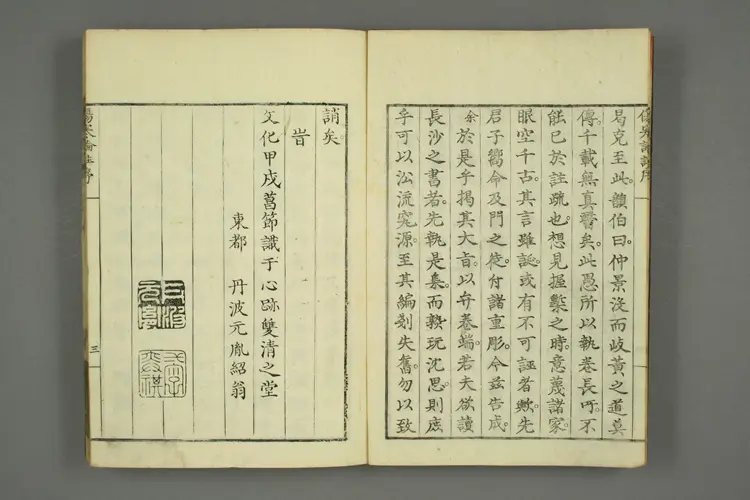 曷克至此韻伯曰仲景沒而岐黃之道莫
傳千載無真醫矣此愚所以執卷長吁不
能已於註疏也想見握槧之時意蔑諸家
眼空千古其言雖誕或有不可誣者歟先
君子嚮命及門之徒付諸重彫今茲告成
余於是乎揭其大旨以弁卷端若夫欲讀
長沙之書者先執是編而熟玩沈思則庶
乎可以㳂流究源至其編剗失舊勿以致
誚矣
旹
文化甲戌菖節識于心跡雙清之堂
東都 丹波元胤紹翁
三